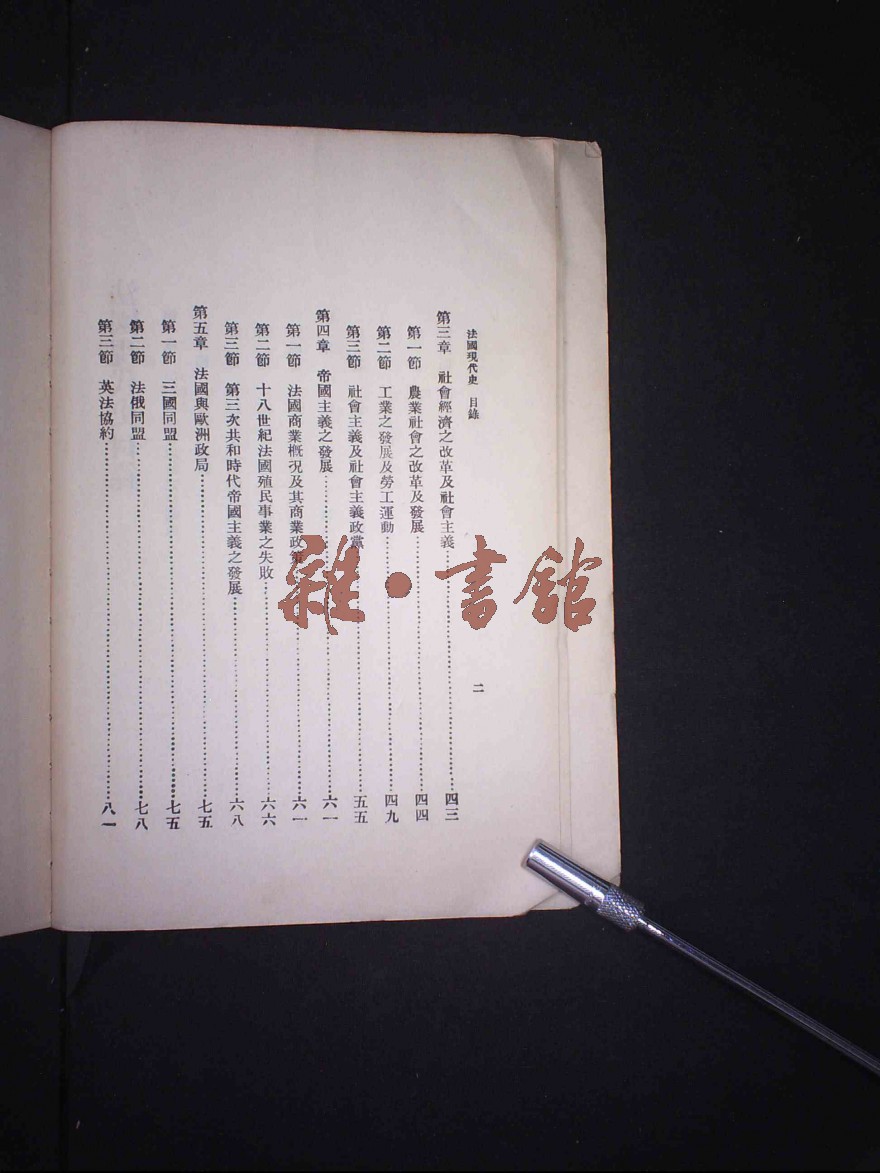 法國現代史 目錄
二
第三章 社會經濟之改革及社會主義……四三
第一節 農業社會之改革及發展……四四
第二節 工業之發展及勞工運動……四九
第三節 社會主義及社會主義政黨……五五
第四章 帝國主義之發展……六一
第一節 法國商業概況及其商業政策……六一
第二節 十八世紀法國殖民事業之失敗……六六
第三節 第三次共和時代帝國主義之發展……六八
第五章 法國與歐洲政局……七五
第一節 三國同盟……七五
第二節 法俄同盟……七八
第三節 英法協約……八一
雜·書館